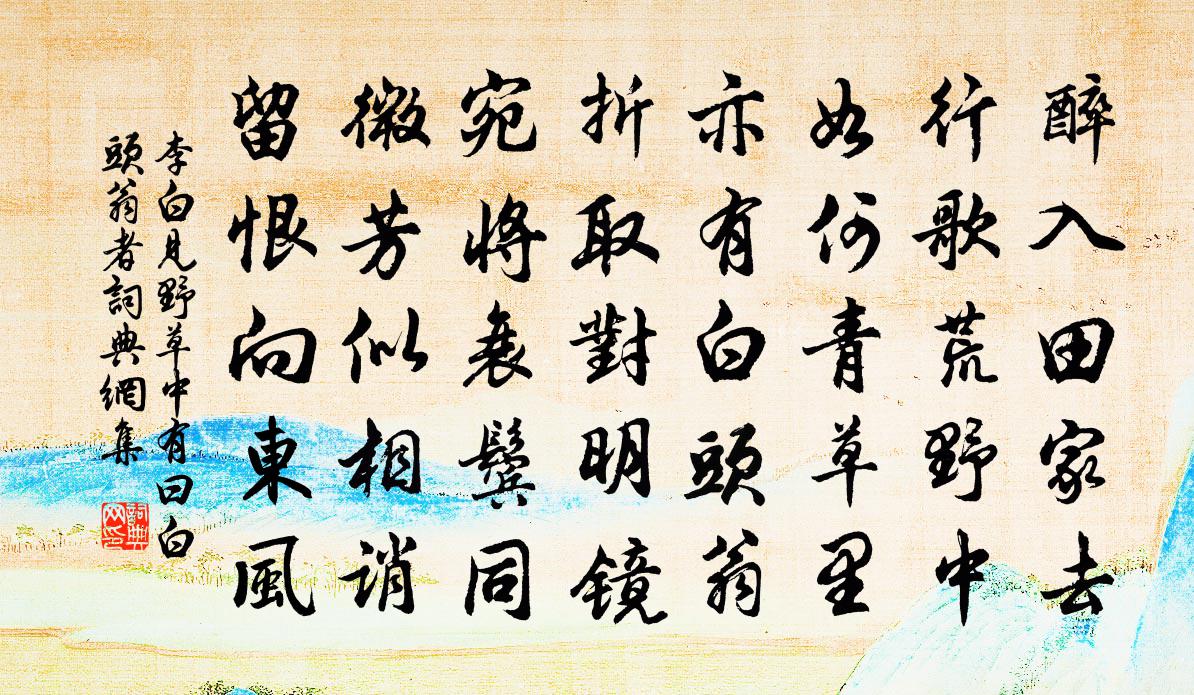 醉入田家去
行歌荒野中
如何青草里
亦有白頭翁
折取對明镜
宛將衰鬢同
微芳似相誚
留恨向東風
李白見野草中有曰白
頭翁者詞典網集
詞典
网印